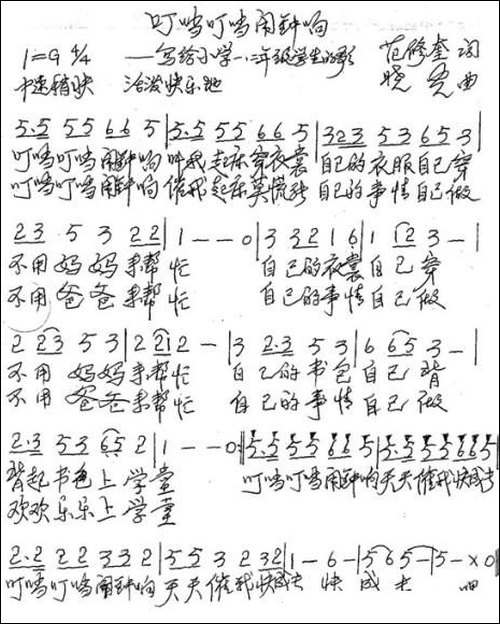 叮当叮当闹钟响
1=G 4/4 ——写给小学一、二年级学生的歌 范修奎 词
中速稍快 活泼快乐地 晓 亮 曲
5·5 55 66 5 | 5·5 55 66 5 | 323 53 653 |
叮当叮当闹钟响 叫我起床穿衣裳 自己的衣服自己穿
叮当叮当闹钟响 催我起床莫慌张 自己的事情自己做
23 5 3 22 | 1 - - 0 | 3 3 2 1 6 | 1 12 3 - |
不用妈妈来帮忙 自己的衣裳自己穿
不用爸爸来帮忙 自己的事情自己做
2 23 5 3 | 2 21 2 - | 3 2·3 5 3 | 6 65 3 - |
不用妈妈来帮忙 自己的书包自己背
不用爸爸来帮忙 自己的事情自己做
2·3 53 65 2 | 1 - - 0 | 5·5 55 66 5 | 5·5 55 665 |
背起书包上学堂 叮当叮当闹钟响天天催我快成长
欢欢乐乐上学堂
2·2 22 33 2 | 55 3 2 32 | 1 - 6 - | 5 6 5 - | 5 - X 0 |
叮当叮当闹钟响 天天催我快成长 快 成 长